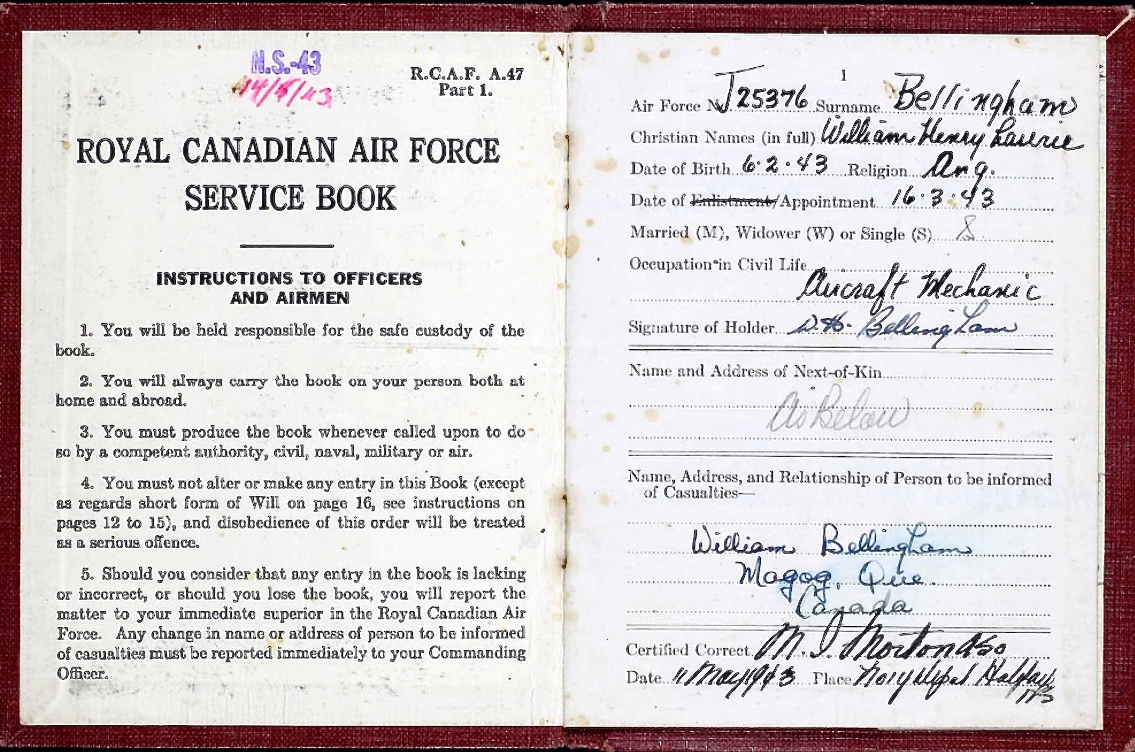 N.S.-43
14/5/43
R.C.A.F. A.47
Part 1.
ROYAL CANADIAN AIR FORCE
SERVICE BOOK
INSTRUCTIONS TO OFFICERS
AND AIRMEN
1. You will be held responsible for the safe custody of the
book.
2. You will always carry the book on your person both at
home and abroad.
3. You must produce the book whenever called upon to do
so by a competent authority, civil, naval, military or air.
4. You must not alter or make any entry in this Book (except
as regards short form of Will on page 16, see instructions on
pages 12 to 15), and disobedience of this order will be treated
as a serious offence.
5. Should you consider that any entry in the book is lacking
or incorrect, or should you lose the book, you will report the
matter to your immediate superior in the Royal Canadian Air
Force. Any change in name or address of person to be informed
of casualties must be reported immediately to your Commanding
Officer.
1
Air Force No. J25376 Surname Bellingham
Christian Names (in full) William Henry Laurie
Date of Birth 6.2.43 Religion Ang.
Date of Enlistment/Appointment 16.3.43
Married (M), Widower (W) or Single (S) S
Occupation in Civil Life
Aircraft Mechanic
Signature of Holder W.H. Bellingham
Name and Address of Next-of-Kin
As Below
Name, Address, and Relationship of Person to be informed
of Casualties—
William Bellingham
Magog, Que.
Canada
Certified Correct M. I Morton A/SO
Date 11 May 1943 Place Halifax
NS